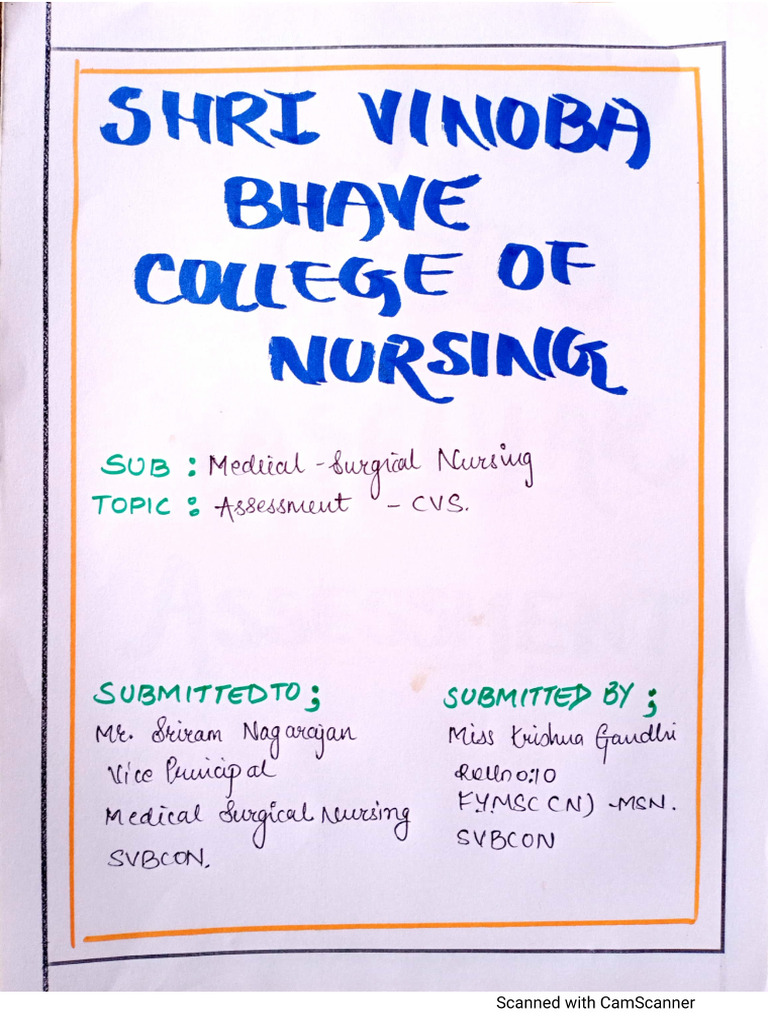 SHRI VINOBA
BHAVE
COLLEGE OF
NURSING
SUB : Medical - Surgical Nursing
TOPIC : Assessment - CVS.
SUBMITTED TO ;
Mr. Sriram Nagarajan
Vice Principal
Medical Surgical Nursing
SVBCON.
SUBMITTED BY ;
Miss Krishna Gandhi
Roll no:10
F.Y.MSC (N) -MSN.
SVBCON
Scanned with CamScanner